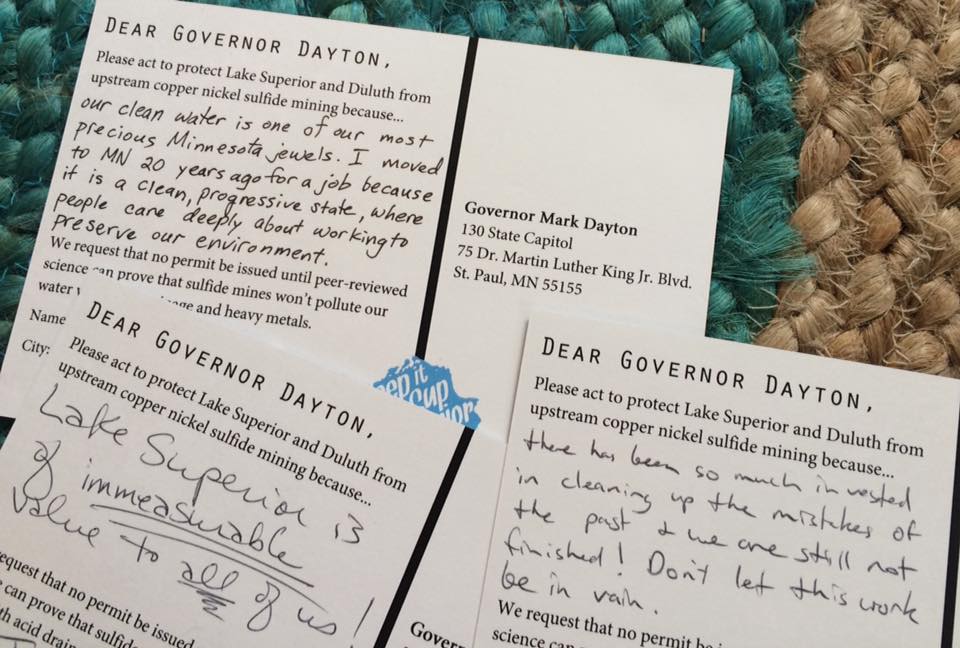 DEAR GOVERNOR DAYTON,
Please act to protect Lake Superior and Duluth from
upstream copper nickel sulfide mining because...
our clean water is one of our most
precious Minnesota jewels. I moved
to MN 20 years ago for a job because
it is a clean, progressive state, where
people care deeply about working to
preserve our environment.
We request that no permit be issued until peer-reviewed
science can prove that sulfide mines won't pollute our
water and heavy metals.
Name
City:
Governor Mark Dayton
130 State Capitol
75 Dr. Martin Luther King Jr. Blvd.
St. Paul, MN 55155
DEAR GOVERNOR DAYTON,
Please act to protect Lake Superior and Duluth from
upstream copper nickel sulfide mining because...
Lake Superior is
of immeasurable
value to all of us!
request that no permit be issued
can prove that sulfide
acid
DEAR GOVERNOR DAYTON,
Please act to protect Lake Superior and Duluth from
upstream copper nickel sulfide mining because...
there has been so much invested
in cleaning up the mistakes of
the past & we are still not
finished! Don't let this work
be in vain.
We request that no permit be
science can